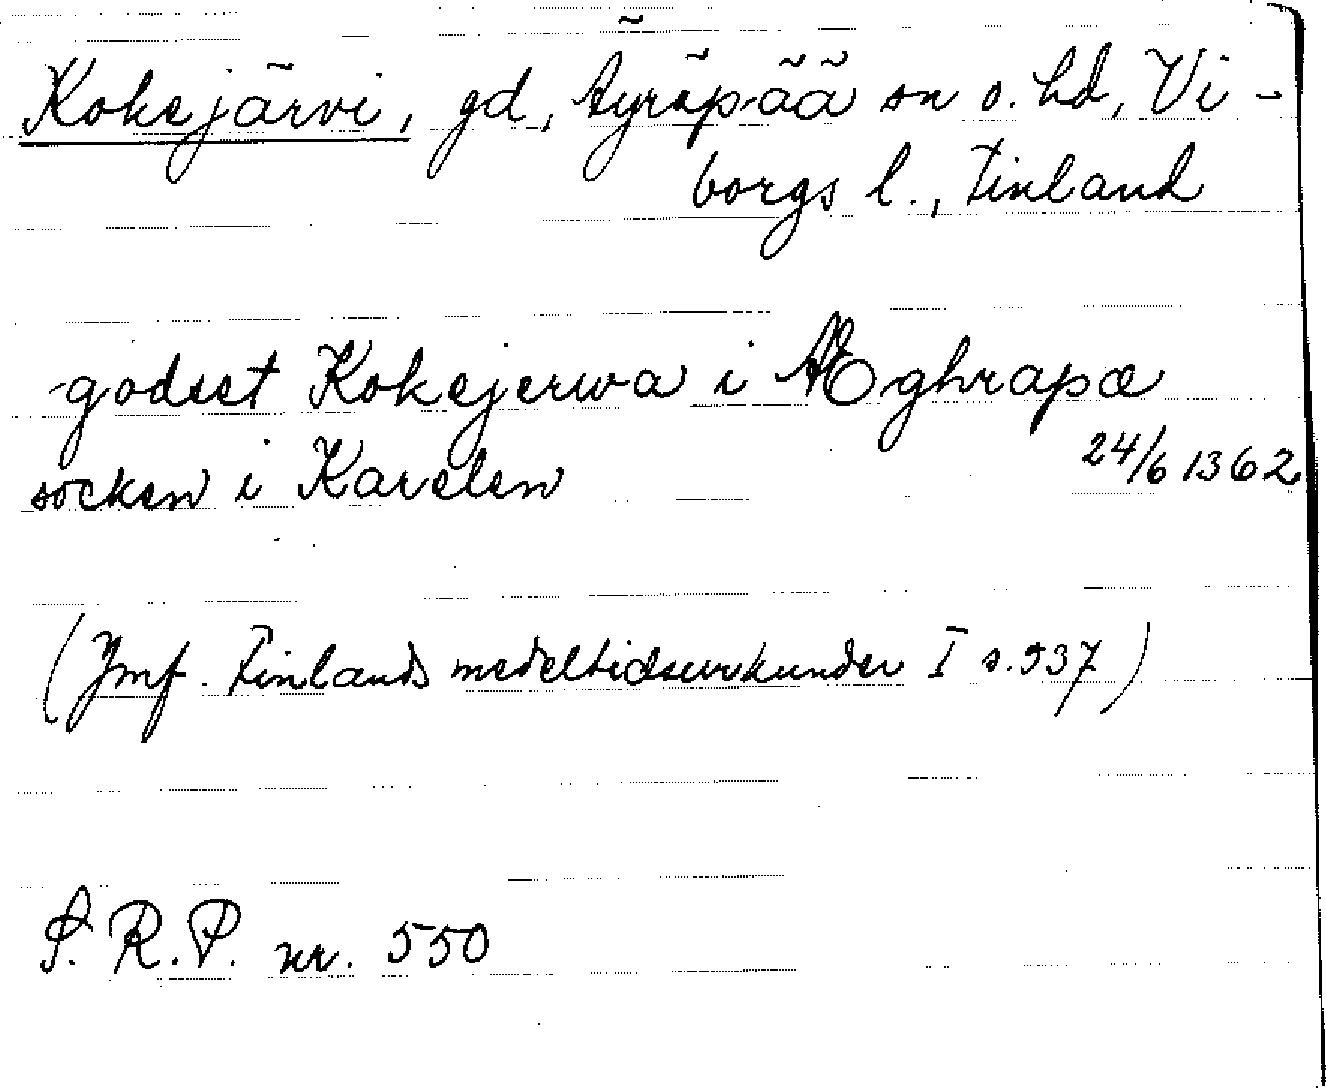 Kokejärvi, gd, Äyräpää sn o. hd, Vi-
borgs l., Finland
godset Kokejerwa i Æghrapæ
socken i Karelen 24/6 1362
(Jmf. Finlands medeltidsurkunder I s. 337)
S.R.P. nr. 550